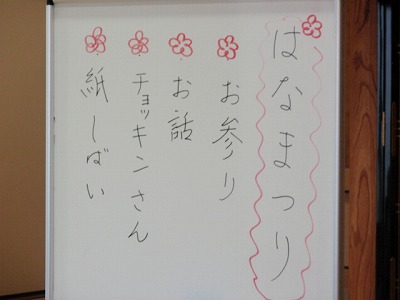 はなまつり
お参り
お話
チョッキンさん
紙しばい